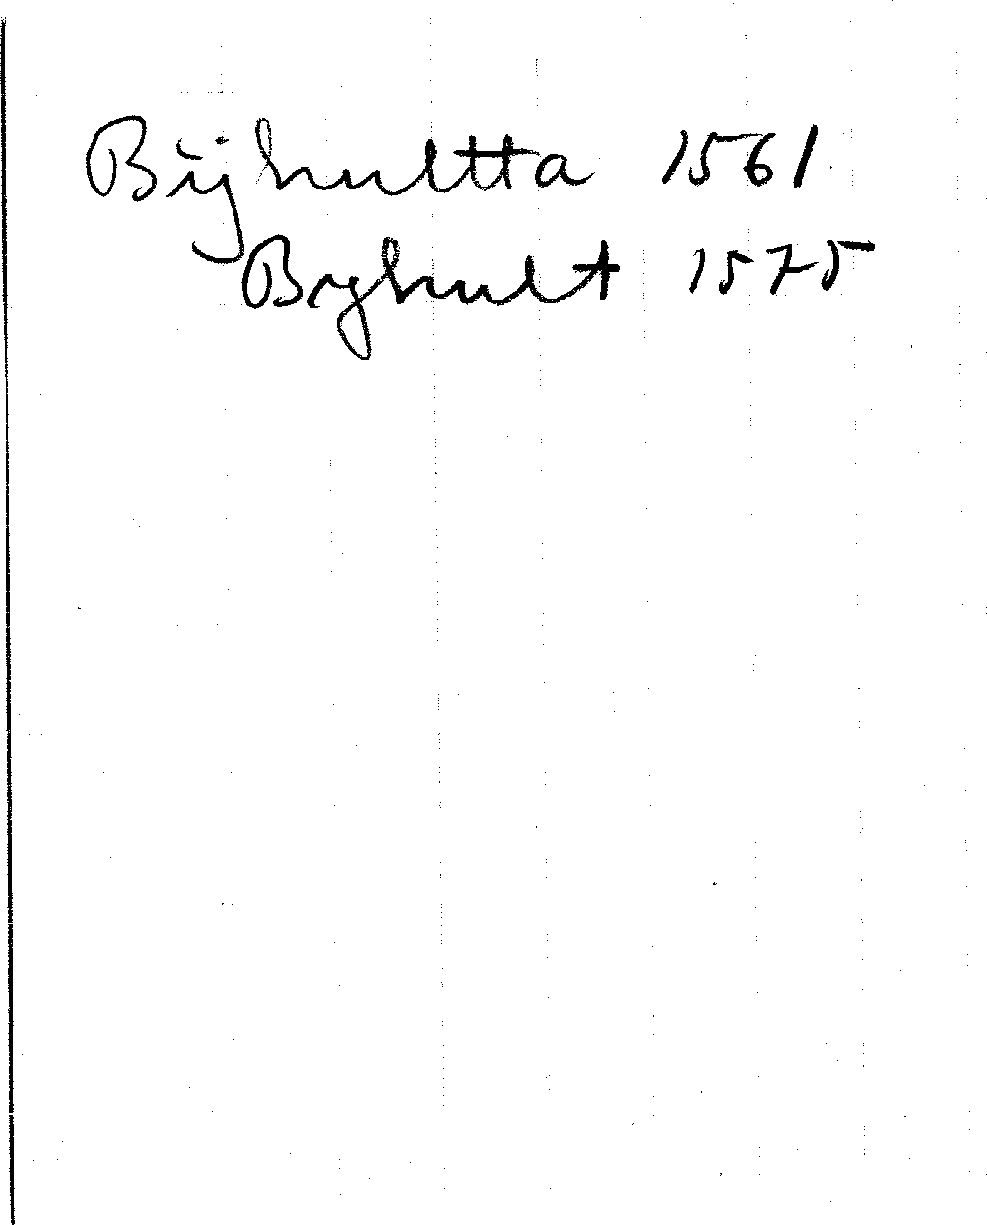 Bijhultta 1561
Byhult 1575